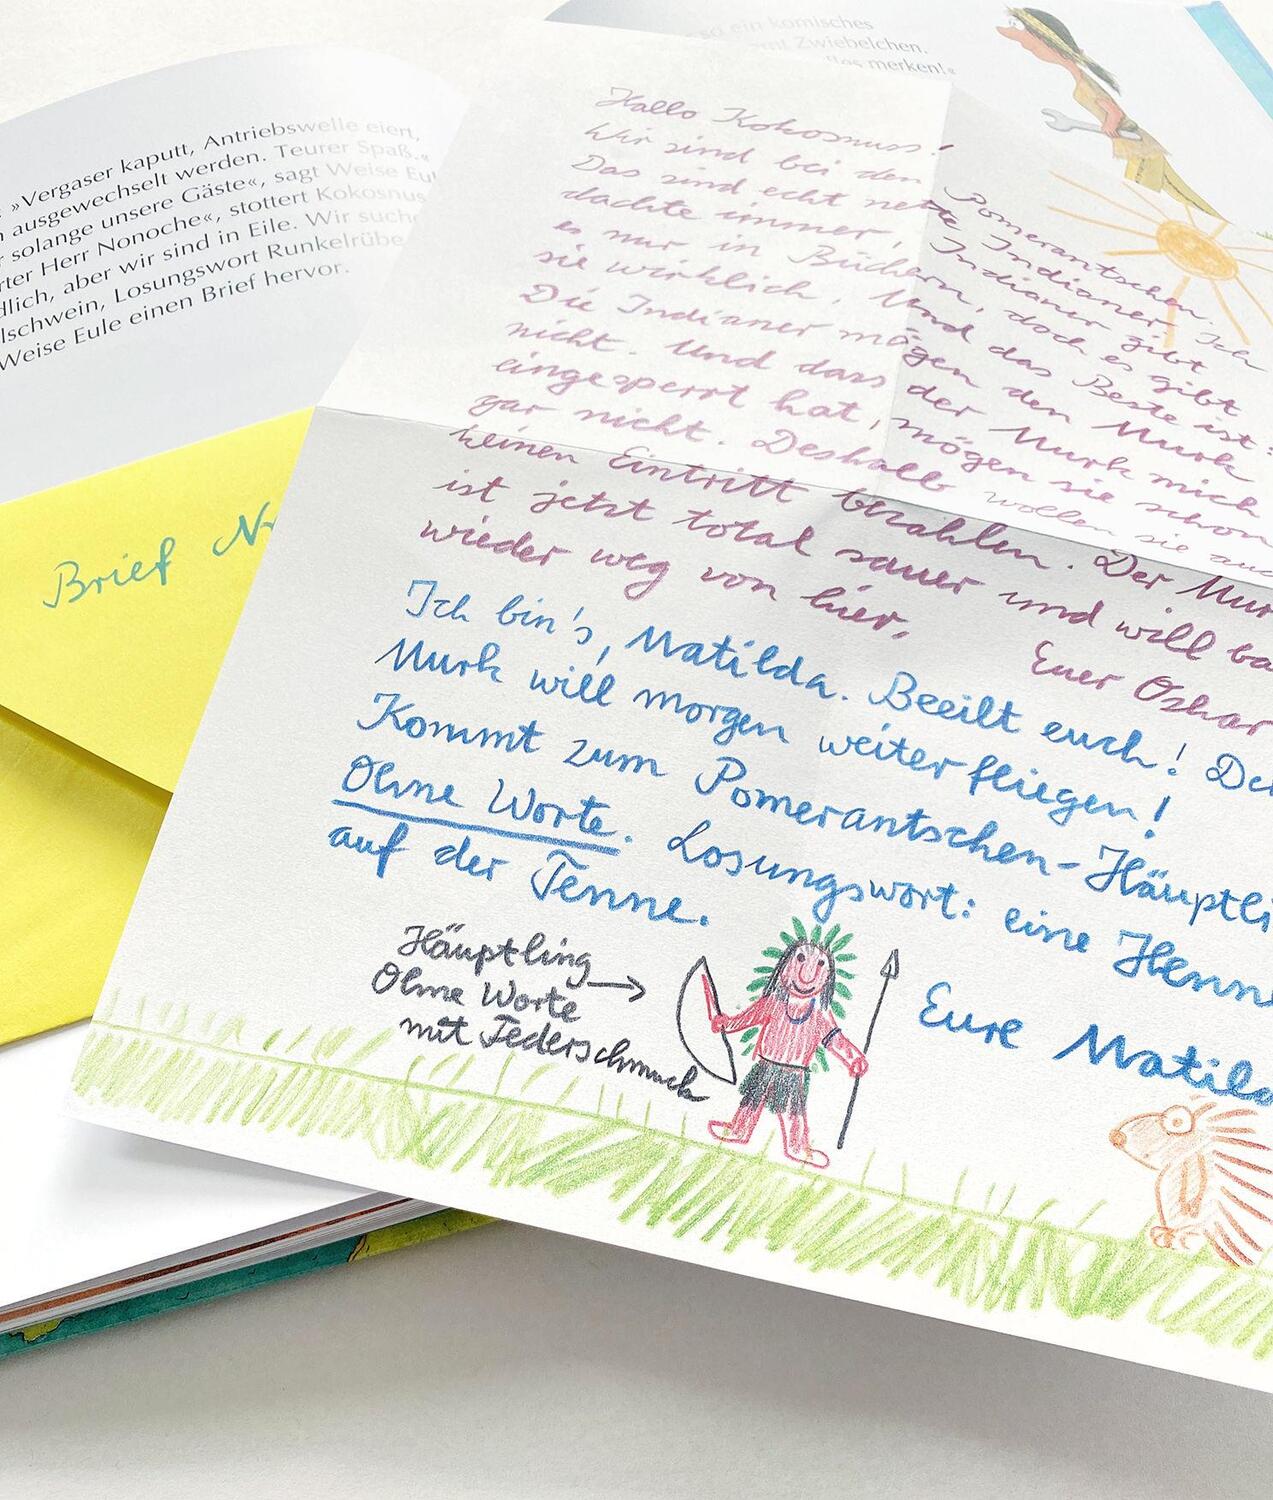 »Vergaser kaputt, Antriebswelle eiert,
ausgewechselt werden. Teurer Spaß.«
solange unsere Gäste«, sagt Weise Eu
rter Herr Nonoche«, stottert Kokosnus
dlich, aber wir sind in Eile. Wir suche
lschwein, Losungswort Runkelrübe
Weise Eule einen Brief hervor.
so ein komisches
Zwiebelchen.
merken!«
Brief Nr
Hallo Kokosnuss!
Wir sind bei den Pomerantschen.
Das sind echt nette Indianer. Ich
dachte immer, Indianer gibt
es nur in Büchern, doch es gibt
sie wirklich. Und das Beste ist:
Die Indianer mögen den Murk
nicht. Und dass der Murk mich
eingesperrt hat, mögen sie schon
gar nicht. Deshalb wollen sie auch
keinen Eintritt bezahlen. Der Mur
ist jetzt total sauer und will ba
wieder weg von hier.
Euer Oskar
Ich bin's, Matilda. Beeilt euch! De
Murk will morgen weiterfliegen!
Kommt zum Pomerantschen-Häuptli
Ohne Worte. Losungswort: eine Henne
auf der Tenne.
Eure Matild
Häuptling
Ohne Worte
mit Federschmuck